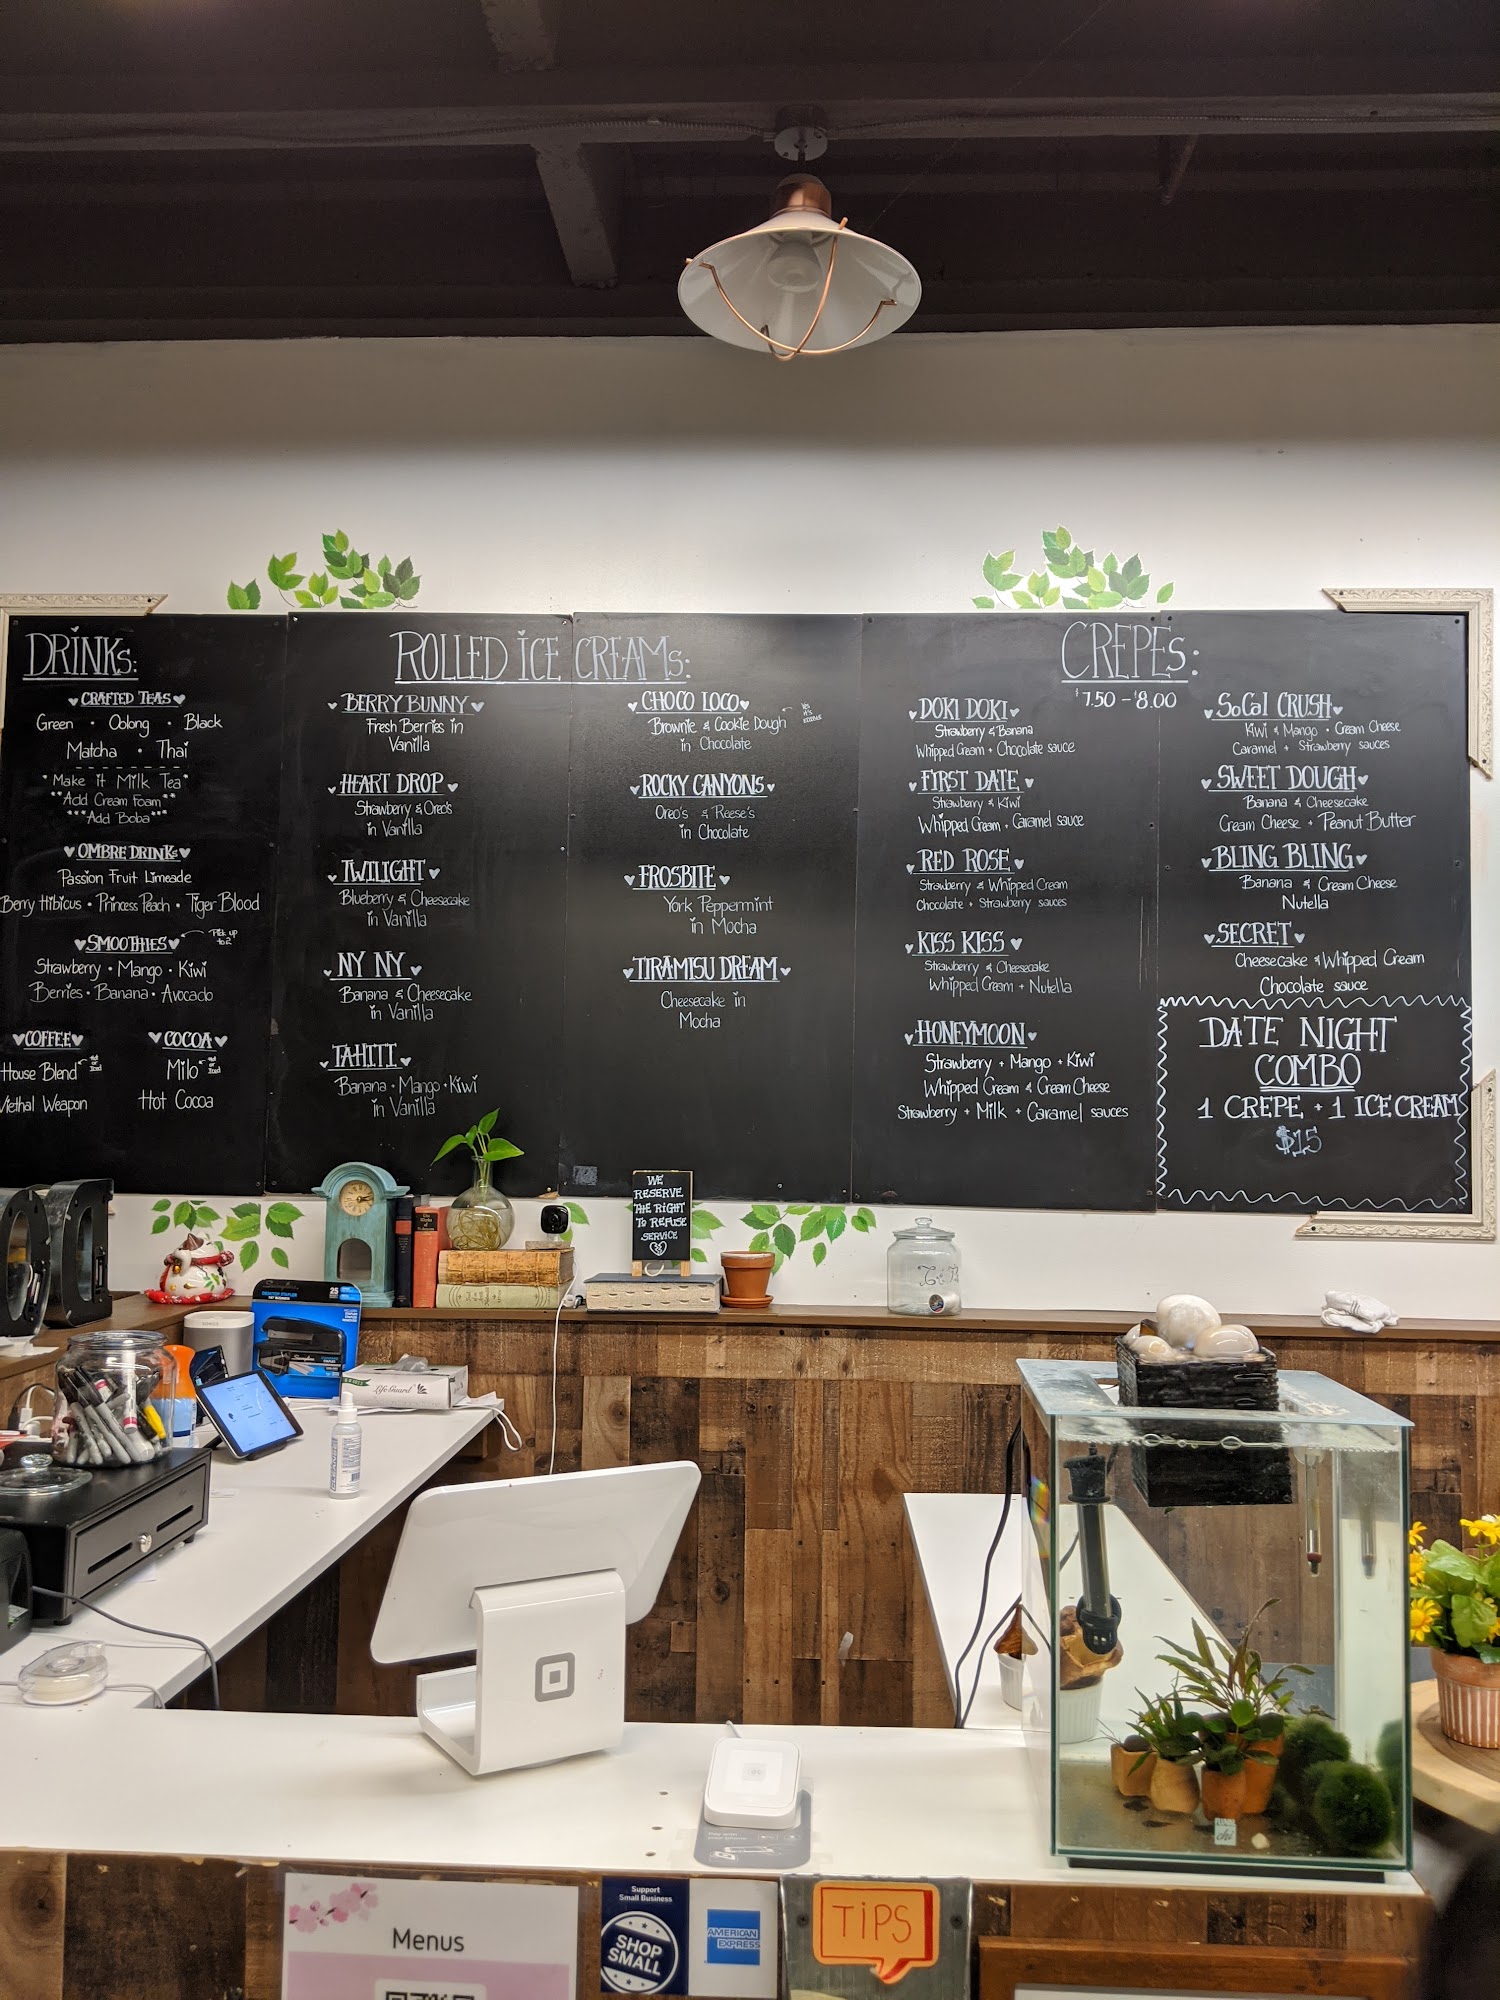 DRINKS:
CRAFTED TEAS
Green • Oolong • Black
Matcha • Thai
*Make it Milk Tea*
**Add Cream Foam**
***Add Boba***
OMBRE DRINKS
Passion Fruit Limeade
Berry Hibicus • Princess Peach • Tiger Blood
SMOOTHIES
Pick up
to 2
Strawberry • Mango • Kiwi
Berries • Banana • Avocado
COFFEE
House Blend
Hot
or
Iced
Viethal Weapon
COCOA
Milo
Hot
or
Iced
Hot Cocoa
ROLLED ICE CREAMS:
BERRY BUNNY
Fresh Berries in
Vanilla
HEART DROP
Strawberry & Oreo's
in Vanilla
TWILIGHT
Blueberry & Cheesecake
in Vanilla
NY NY
Banana & Cheesecake
in Vanilla
TAHITI
Banana • Mango • Kiwi
in Vanilla
CHOCO LOCO
Brownie & Cookie Dough
in Chocolate
Yes
it's
EDIBLE
ROCKY CANYONS
Oreo's & Reese's
in Chocolate
FROSBITE
York Peppermint
in Mocha
TIRAMISU DREAM
Cheesecake in
Mocha
CREPES:
$7.50 - $8.00
DOKI DOKI
Strawberry & Banana
Whipped Cream + Chocolate sauce
FIRST DATE
Strawberry & Kiwi
Whipped Cream + Caramel sauce
RED ROSE
Strawberry & Whipped Cream
Chocolate + Strawberry sauces
KISS KISS
Strawberry & Cheesecake
Whipped Cream + Nutella
HONEYMOON
Strawberry + Mango + Kiwi
Whipped Cream & Cream Cheese
Strawberry + Milk + Caramel sauces
SoCal CRUSH
Kiwi & Mango + Cream Cheese
Caramel + Strawberry sauces
SWEET DOUGH
Banana & Cheesecake
Cream Cheese + Peanut Butter
BLING BLING
Banana & Cream Cheese
Nutella
SECRET
Cheesecake & Whipped Cream
Chocolate sauce
DATE NIGHT
COMBO
1 CREPE + 1 ICE CREAM
$15
WE
RESERVE
THE RIGHT
TO REFUSE
SERVICE
SONOS
25
LifeGuard
Menus
Support
Small Business
SHOP
SMALL
AMERICAN
EXPRESS
TIPS
chi